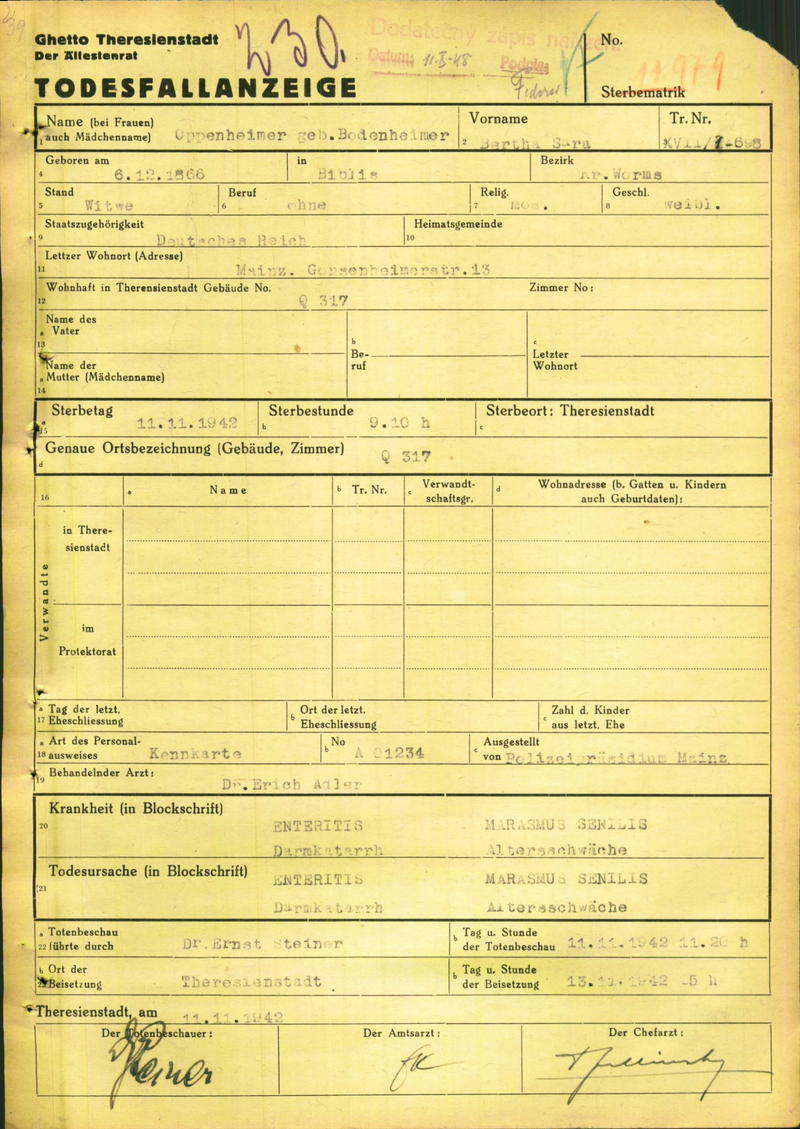 39
Ghetto Theresienstadt
Der Ältestenrat
TODESFALLANZEIGE
Dodatečný zápis
Datum: 11.X-48
Podpis
No.
11979
Sterbematrik
Name (bei Frauen)
1 auch Mädchenname)
Oppenheimer geb.Bodenheimer
Vorname
2 Bertha Sara
Tr. Nr.
3 XVII/
Geboren am
4 6.12.1866
in
Biblis
Bezirk
Kr.Worms
Stand
5 Witwe
Beruf
6 ohne
Relig.
7 mos.
Geschl.
8 weibl.
Staatszugehörigkeit
9 Deutsches Reich
Heimatsgemeinde
10
Lettzer Wohnort (Adresse)
11 Mainz. Gonsenheimerstr.13
Wohnhaft in Therensienstadt Gebäude No.
12 Q 317
Zimmer No:
Name des
a Vater
13
Name der
a Mutter (Mädchenname)
14
b
Be-
ruf
c
Letzter
Wohnort
Sterbetag
a 15 11.11.1942
Sterbestunde
b 9.10 h
Sterbeort: Theresienstadt
c
Genaue Ortsbezeichnung (Gebäude, Zimmer)
d Q 317
16
a Name
b Tr. Nr.
c Verwandt-
schaftsgr.
d Wohnadresse (b. Gatten u. Kindern
auch Geburtdaten):
Verwandte
in There-
sienstadt
im
Protektorat
a Tag der letzt.
17 Eheschliessung
b Ort der letzt.
Eheschliessung
c Zahl d. Kinder
aus letzt. Ehe
a Art des Personal-
18 ausweises Kennkarte
No
b A 01234
Ausgestellt
c von Polizeipräsidium Mainz
Behandelnder Arzt:
19 Dr.Erich Adler
Krankheit (in Blockschrift)
20
ENTERITIS MARASMUS SENILIS
Darmkatarrh Altersschwäche
Todesursache (in Blockschrift)
21
ENTERITIS MARASMUS SENILIS
Darmkatarrh Altersschwäche
a Totenbeschau
22 führte durch Dr.Ernst Steiner
b Tag u. Stunde
der Totenbeschau 11.11.1942 11.20 h
Ort der
Beisetzung Theresienstadt
b Tag u. Stunde
der Beisetzung 13.11.1942 5 h
Theresienstadt, am 11.11.1942
Der Totenbeschauer:
Steiner
Der Amtsarzt:
Der Chefarzt: